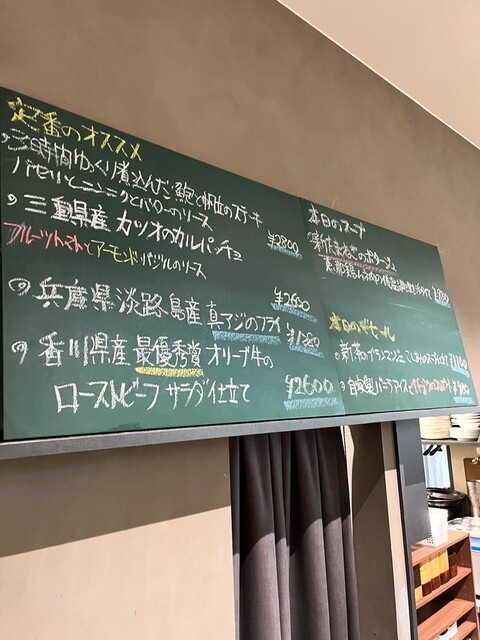 定番のオススメ
5時間ゆっくり煮込んだ鮑と帆立のステーキ
パセリとニンニクとバターのソース
¥2800
三重県産 カツオのカルパッチョ
フルーツトマトとアーモンドバジルのソース
¥2600
兵庫県淡路島産真アジのフライ
香川県産 最優秀賞 オリーブ牛の
ローストビーフ サラダ仕立て
¥2600
本日のスープ
新たまねぎのポタージュ
本日のデザート
自家製バニラアイス